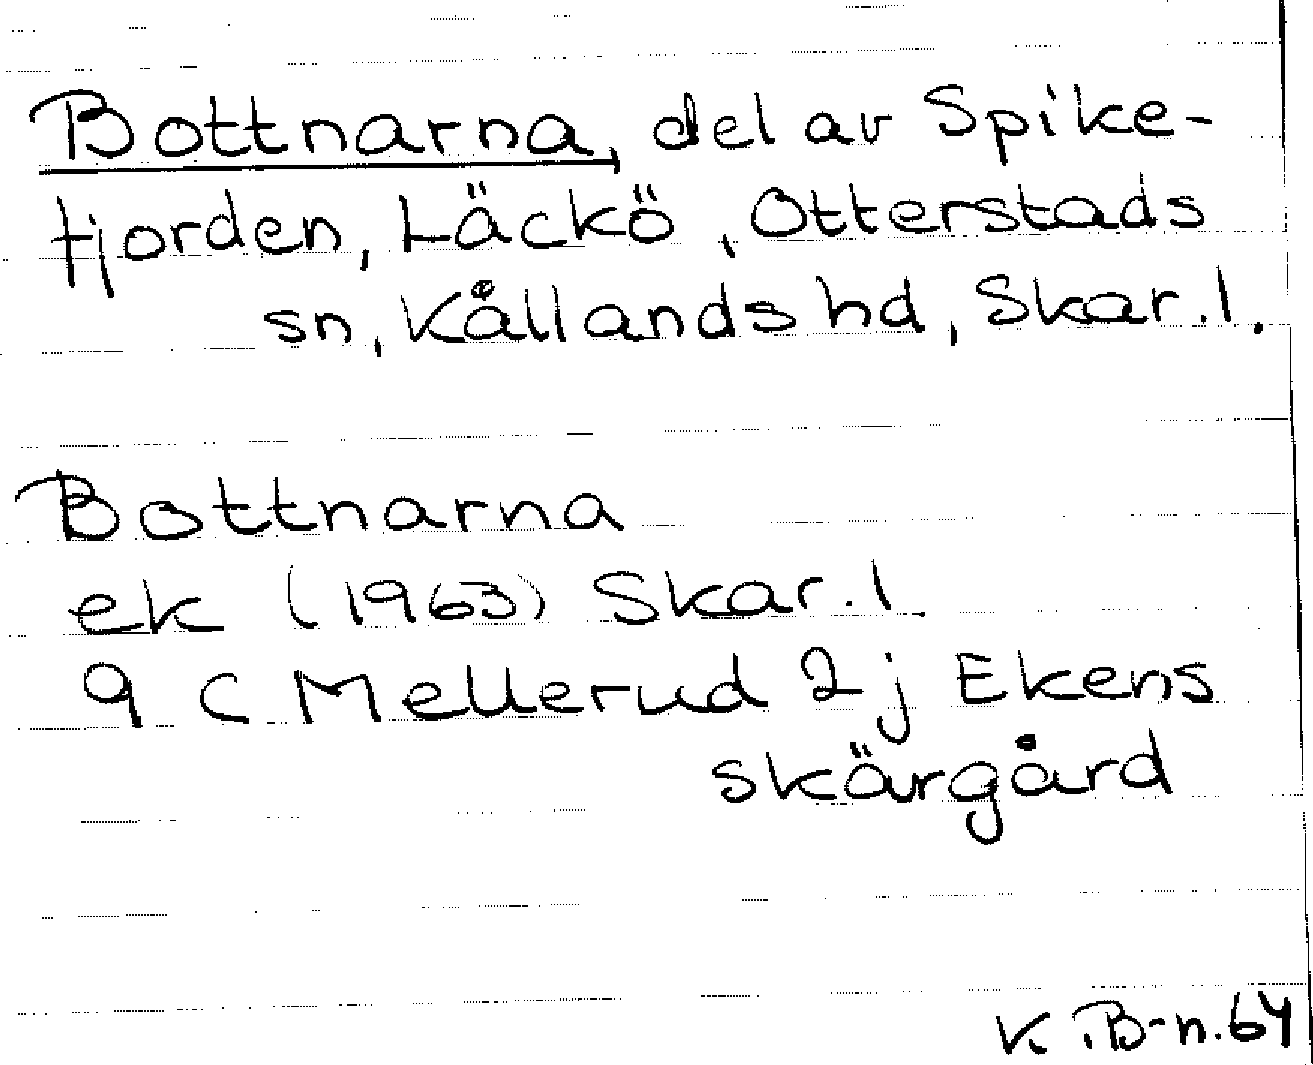 Bottnarna, del av Spike-
fjorden, Läckö, Otterstads
sn, Kållands hd, Skar.l.
Bottnarna
ek (1963) Skar.l.
9 C Mellerud 2 j Ekens
skärgård
K. B-n. 64